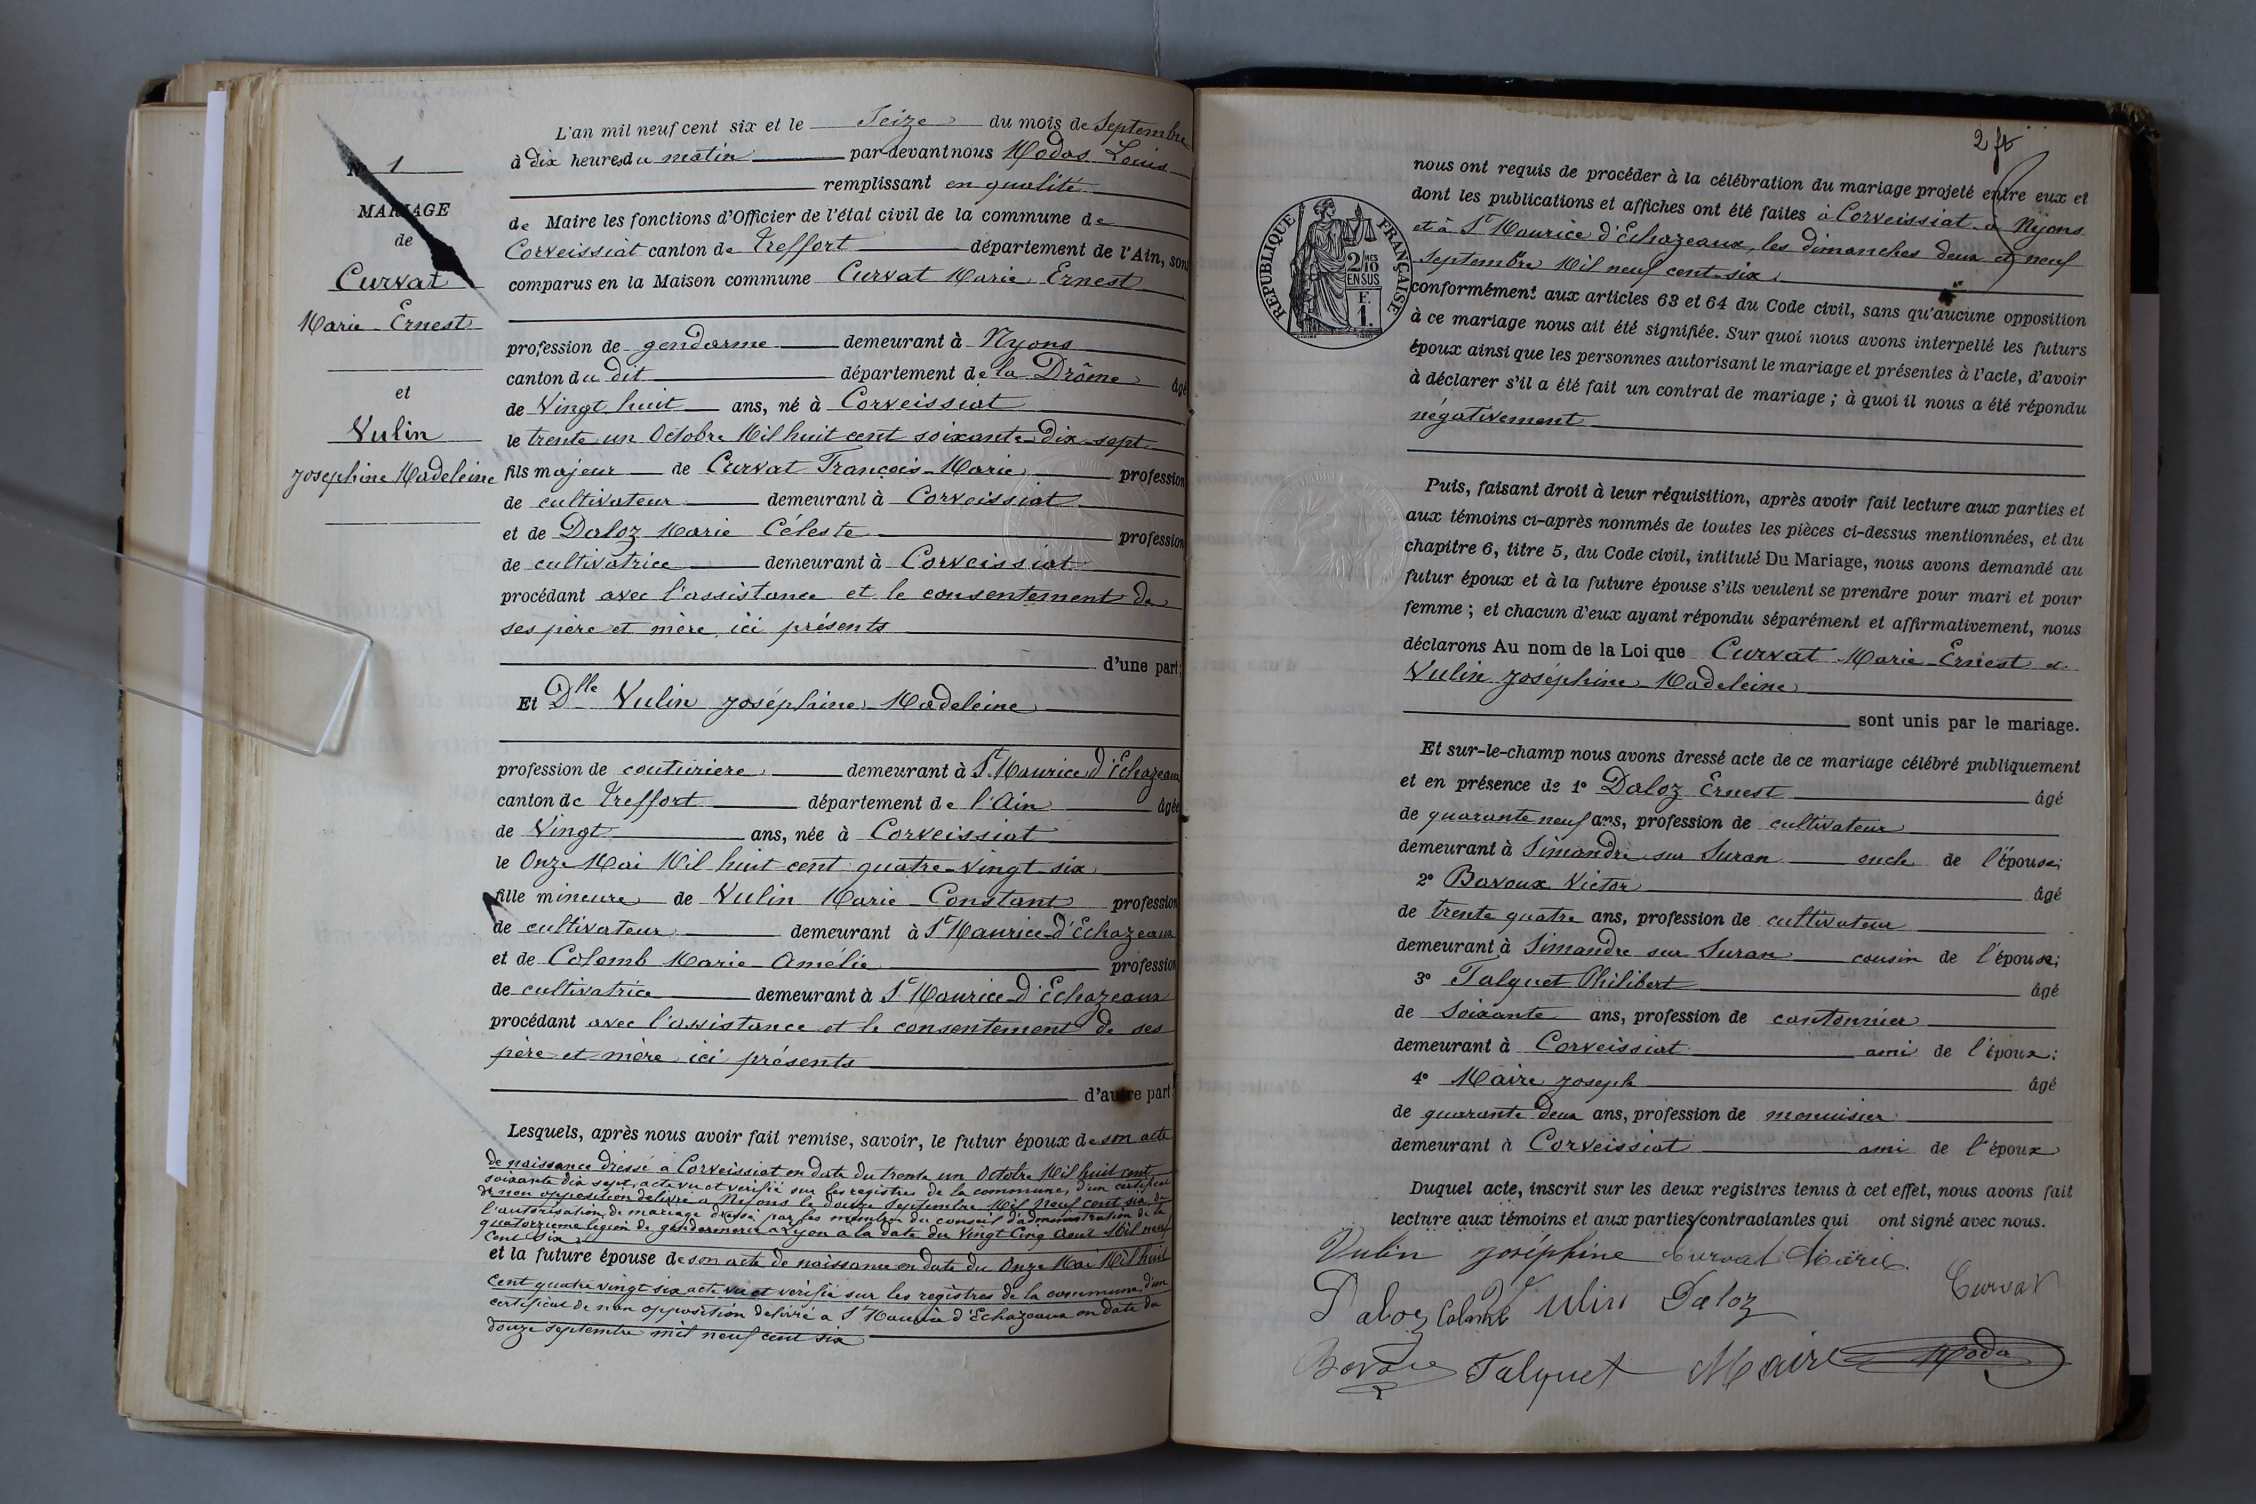 N° 1
MARIAGE
de
Curvat
Marie-Ernest
et
Vulin
Joséphine Madeleine
L'an mil neuf cent six et le Seize du mois de Septembre
à dix heures du matin par devant nous Modas Louis
remplissant en qualité
de Maire les fonctions d'Officier de l'état civil de la commune de
Corveissiat canton de Treffort département de l'Ain, sont
comparus en la Maison commune Curvat Marie Ernest
profession de gendarme demeurant à Nyons
canton du dit département de la Drôme âgé
de Vingt huit ans, né à Corveissiat
le trente un Octobre Mil huit cent soixante-dix-sept
fils majeur de Curvat François-Marie profession
de cultivateur demeurant à Corveissiat
et de Daloz Marie Céleste profession
de cultivatrice demeurant à Corveissiat
procédant avec l'assistance et le consentement de
ses père et mère ici présents
d'une part;
Et Dlle Vulin Joséphine Madeleine
profession de couturière demeurant à St Maurice d'Echazeaux
canton de Treffort département de l'Ain âgée
de Vingt ans, née à Corveissiat
le Onze Mai Mil huit cent quatre-vingt-six
fille mineure de Vulin Marie-Constant profession
de cultivateur demeurant à St Maurice-d'Echazeaux
et de Colomb Marie-Amélie profession
de cultivatrice demeurant à St Maurice-d'Echazeaux
procédant avec l'assistance et le consentement de ses
père et mère ici présents
d'autre part:
Lesquels, après nous avoir fait remise, savoir, le futur époux de son acte
de naissance dressé à Corveissiat en date du trente un Octobre Mil huit cent
soixante dix sept, acte vu et vérifié sur les registres de la commune, d'un certificat
de non opposition délivré à Nyons le douze Septembre Mil neuf cent six, de
l'autorisation de mariage dressé par les membres du conseil d'administration de la
quatorzième légion de gendarmerie à Lyon à la date du Vingt Cinq Aout Mil neuf
cent six
et la future épouse de son acte de naissance en date du Onze Mai Mil huit
cent quatre vingt six acte vu et vérifié sur les registres de la commune, d'un
certificat de non opposition délivré à St Maurice d'Echazeaux en date du
douze septembre mil neuf cent six
2 ft
RÉPUBLIQUE FRANÇAISE
2/10
EN SUS
F.
1.
nous ont requis de procéder à la célébration du mariage projeté entre eux et
dont les publications et affiches ont été faites à Corveissiat à Nyons
et à St Maurice d'Echazeaux, les dimanches deux et neuf
Septembre Mil neuf cent six.
conformément aux articles 63 et 64 du Code civil, sans qu'aucune opposition
à ce mariage nous ait été signifiée. Sur quoi nous avons interpellé les futurs
époux ainsi que les personnes autorisant le mariage et présentes à l'acte, d'avoir
à déclarer s'il a été fait un contrat de mariage; à quoi il nous a été répondu
négativement
Puis, faisant droit à leur réquisition, après avoir fait lecture aux parties et
aux témoins ci-après nommés de toutes les pièces ci-dessus mentionnées, et du
chapitre 6, titre 5, du Code civil, intitulé Du Mariage, nous avons demandé au
futur époux et à la future épouse s'ils veulent se prendre pour mari et pour
femme; et chacun d'eux ayant répondu séparément et affirmativement, nous
déclarons Au nom de la Loi que Curvat Marie-Ernest et
Vulin Joséphine-Madeleine
sont unis par le mariage.
Et sur-le-champ nous avons dressé acte de ce mariage célébré publiquement
et en présence de 1° Daloz Ernest âgé
de quarante neuf ans, profession de cultivateur
demeurant à Simandre sur Suran oncle de l'épouse;
2° Bavoux Victor âgé
de trente quatre ans, profession de cultivateur
demeurant à Simandre sur Suran cousin de l'épouse;
3° Falquet Philibert âgé
de Soixante ans, profession de cantonnier
demeurant à Corveissiat ami de l'époux;
4° Maire Joseph âgé
de quarante deux ans, profession de menuisier
demeurant à Corveissiat ami de l'époux
Duquel acte, inscrit sur les deux registres tenus à cet effet, nous avons fait
lecture aux témoins et aux parties contractantes qui ont signé avec nous.
Vulin Joséphine Curvat Marie
Curvat
Daloz Colomb Vulin Daloz
Bavoux Falquet Maire Modas